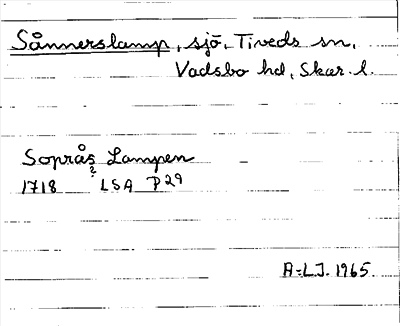 Sånnerslamp, sjö, Tiveds sn,
Vadsbo hd, Skar. l.
Soprås Lampen
?
1718 LSA P29
A-LJ. 1965.